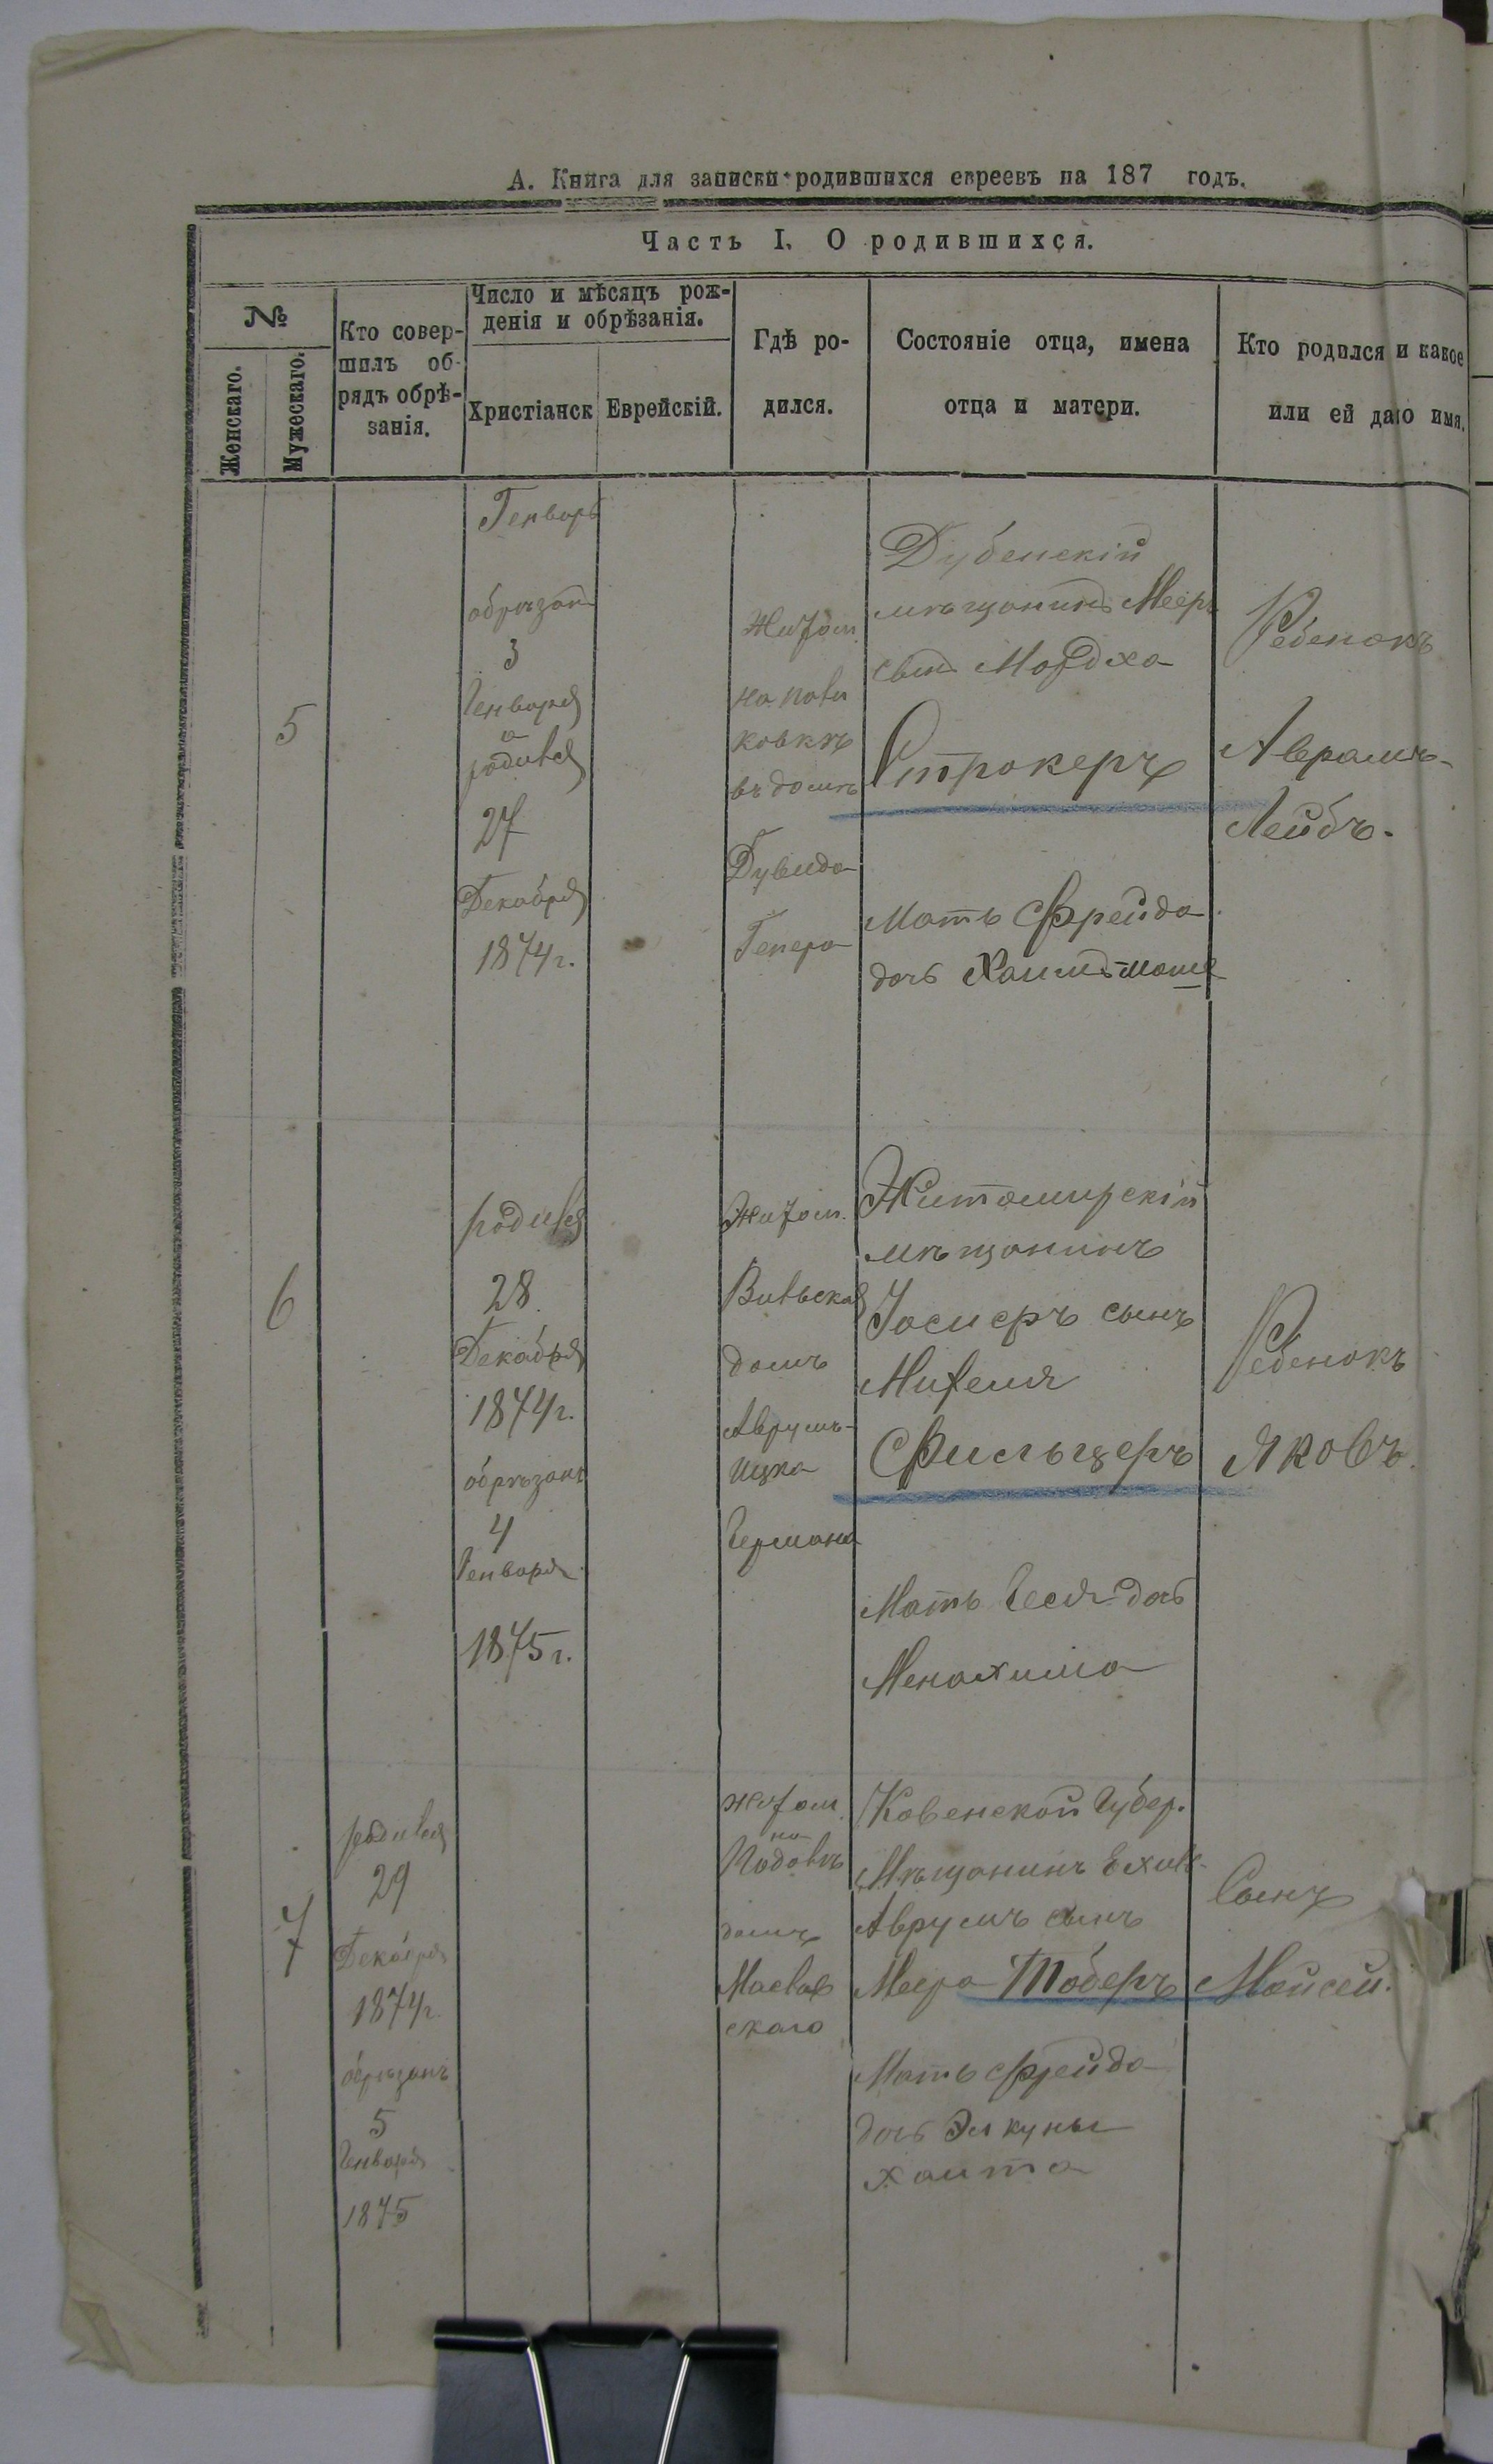 А. Книга для записки родившихся евреевъ на 187 годъ.
Часть I. О родившихся.
№
Женскаго.
Мужескаго.
Кто совер-
шилъ об-
рядъ обрѣ-
занія.
Число и мѣсяцъ рож-
денія и обрѣзанія.
Христіанск
Еврейскій.
Гдѣ ро-
дился.
Состояніе отца, имена
отца и матери.
Кто родился и какое
или ей дано имя.
5
Генварь
обрѣзанъ
3
Генваря
а
родився
27
Декабря
1874 г.
Житом.
на
въ домѣ
Дувида
Гекера
Дубенскій
мѣщанинъ Мееръ
сынъ Мордха
Строкеръ
Мать Фрейда
дочь Хаимъ-Мошя
Ребенокъ
Аврамъ-
Лейбъ.
6
родився
28
Декабря
1874 г.
обрѣзанъ
4
Генваря
1875 г.
Житом.
Вильская
домъ
Аврумъ-
Ицка
Германа
Житомирскій
мѣщанинъ
Іосиеръ сынъ
Михеля
Фильцеръ
Мать Геся дочь
Менахима
Ребенокъ
Яковъ.
7
родився
29
Декабря
1874 г.
обрѣзанъ
5
Генваря
1875
Житом.
на
домъ
скаго
Ковенской Губер.
Мѣщанинъ Ехил-
Аврумъ сынъ
Меера Тоберъ
Мать Фрейда
дочь Элкуны
Хаита
Сынъ
Мойсей.